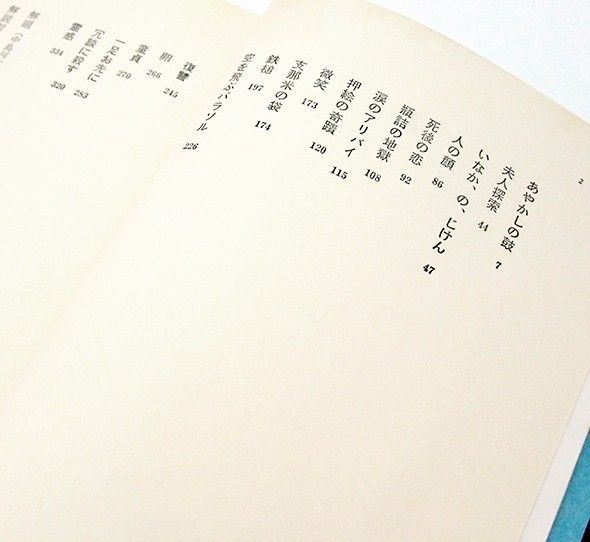 2
あやかしの鼓 7
夫人探索 44
いなか、の、じけん 47
人の顔 86
死後の恋 92
瓶詰の地獄 108
涙のアリバイ 115
押絵の奇蹟 120
微笑 173
支那米の袋 174
鉄槌 197
空を飛ぶパラソル 226
復讐 245
卵 266
童貞 270
一足お先に 283
冗談に殺す 320
霊感 334
解題（中島河
解説対